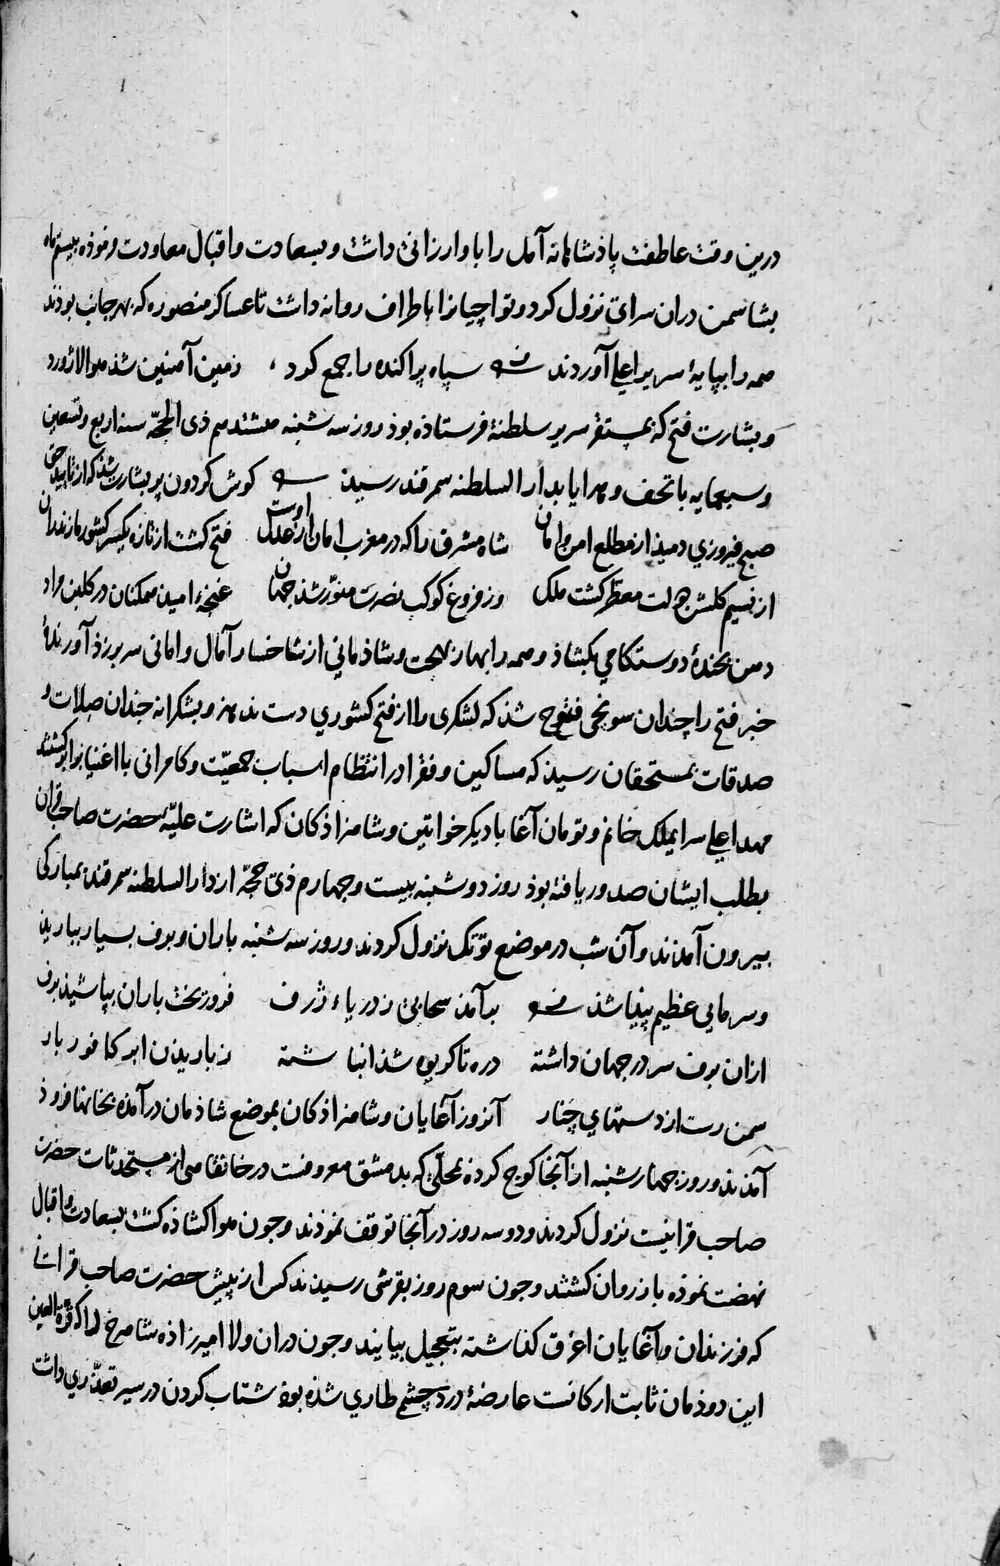 درین وقت عاطفت پاذشاهانه آمل را باو ارزانی داشت و بسعادت و اقبال معاودت فرموذه بیستم ماه
بشاسمن دران سرای نزول کرد و تواجیانرا باطراف روانه داشت تا عساکر منصوره که بهر جانب بوذند
همه را بپایهٔ سریر اعلی آوردند سپاه پراکنده را جمع کرد زمین آهنین شذ هوا لاژورد
و بشارت فتح که بمستقر سریر سلطنة فرستاذه بوذ روز سه شنبه هشتدهم ذی الحجّه سنه اربع وتسعین
وسبعمایه با تحف و هدایا بدار السلطنه سمرقند رسیذ کوش کردون پر بشارت شذ که از تایید حق
صبح فیروزی دمیذ از مطلع امن و امان شاه مشرق را که در مغرب امان از عدل اوست فتح کشت از تازه یکسر کشور مازندران
از نسیم کلشن دولت معطّر کشت ملک وز فروغ کوکب نصرت منوّر شذ جهان غنچهٔ امید ممکنان در کلبن مراد
دهن بخندهٔ دوستکامی بکشاذ و همه را بهار بهجت و شاذمانی از شاخسار آمال و امانی سر برزذ آورندهٔ
خبر فتح را چندان سونجی فتوح شذ که لشکری را از فتح کشوری دست ندهد و بشکرانه چندان صلات و
صدقات بمستحقان رسیذ که مساکین و فقرا در انتظام اسباب جمعیّت و کامرانی با اغنیا برابر کشتند
مهد اعلی سرایملک خانم و تومان آغا با دیکر خواتین و شاهزاذکان که اشارت علیّهٔ حضرت صاحب قران
بطلب ایشان صدور یافته بوذ روز دوشنبه بیست وچهارم ذی حجّه از دار السلطنه سمرقند بمبارکی
بیرون آمدند و آن شب در موضع توتک نزول کردند و روز سه شنبه باران و برف بسیار بباریذ
و سرمایی عظیم پیذا شذ برآمذ سحابی ز دریاء ژرف فرو ریخت باران بپاشیذ برف
ازان برف سر در جهان داشته دره تا کریوه شذ انباشته ز باریذن ابر کافور بار
سمن رست از دستهای چنار آنروز آغایان و شاهزاذکان بموضع شاذمان درآمده بخانها فروذ
آمذند و روز چهارشنبه از آنجا کوچ کرده بمحلّی که بدمشق معروفست در خانقاهی از مستحدثات حضرت
صاحب قرانیست نزول کردند و دو سه روز در آنجا توقف نموذند و چون هوا کشاذه کشت بسعادت و اقبال
نهضت نموذه باز روان کشتند و چون سوم روز بقرشی رسیدند کس از پیش حضرت صاحب قرانی
که فرزندان و آغایان اغرق کذاشته بتعجیل بیایند و چون دران ولا امیرزاذه شاهرخ را که قرّة العین
این دوذمان ثابت ارکانست عارضهٔ درد چشم طاری شذه بوذ شتاب کردن در سیر تعذّری داشت